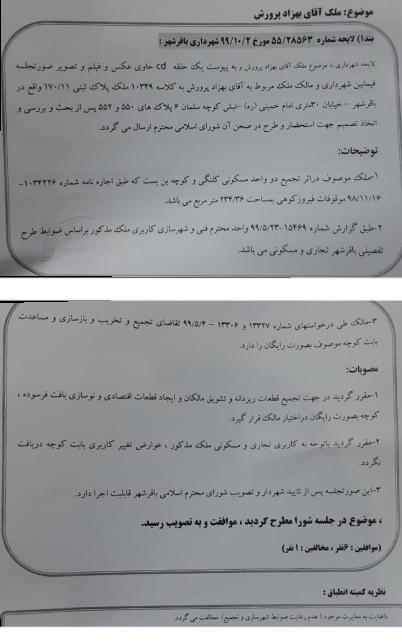 موضوع: ملک آقای بهزاد پرورش
بند۱) لایحه شماره ۵۵/۲۸۵۶۳ مورخ ۹۹/۱۰/۲ شهرداری باقرشهر :
لایحه شهرداری با موضوع ملک آقای بهزاد پرورش و به پیوست یک حلقه cd حاوی عکس و فیلم و تصویر صورتجلسه
فیمابین شهرداری و مالک ملک مربوط به آقای بهزاد پرورش به کلاسه ۱۰۳۴۹ ملک پلاک ثبتی ۱۷۰/۱۱ واقع در
باقرشهر – خیابان ۳۰متری امام خمینی (ره) –نبش کوچه سلمان ۶ پلاک های ۵۵۰ و ۵۵۲ پس از بحث و بررسی و
اتخاذ تصمیم جهت استحضار و طرح در صحن آن شورای اسلامی محترم ارسال می گردد.
توضیحات:
۱-ملک موصوف دراثر تجمیع دو واحد مسکونی کلنگی و کوچه بن بست که طبق اجاره نامه شماره ۱۰۳۴۲۲۶-
۹۸/۱۱/۱۶ موقوفات فیروزکوهی بمساحت ۲۳۴/۳۶ متر مربع می باشد.
۲-طبق گزارش شماره ۱۵۴۶۹-۹۹/۵/۲۳ واحد محترم فنی و شهرسازی کاربری ملک مذکور براساس ضوابط طرح
تفصیلی باقرشهر تجاری و مسکونی می باشد.
۳-مالک طی درخواستهای شماره ۱۳۳۲۷ و ۱۳۳۰۶ – ۹۹/۵/۴ تقاضای تجمیع و تخریب و بازسازی و مساعدت
بابت کوچه موصوف بصورت رایگان را دارد.
مصوبات:
۱-مقرر گردید در جهت تجمیع قطعات ریزدانه و تشویق مالکان و ایجاد قطعات اقتصادی و نوسازی بافت فرسوده ،
کوچه بصورت رایگان دراختیار مالک قرار گیرد.
۲-مقرر گردید باتوجه به کاربری تجاری و مسکونی ملک مذکور ، عوارض تغییر کاربری بابت کوچه دریافت
نگردد.
۳-این صورتجلسه پس از تایید شهردار و تصویب شورای محترم اسلامی باقرشهر قابلیت اجرا دارد.
، موضوع در جلسه شورا مطرح گردید ، موافقت و به تصویب رسید.
(موافقین : ۶نفر ، مخالفین : ۱ نفر)
نظریه کمیته انطباق :
باعنایت به مغایرت موجود (عدم رعایت ضوابط شهرسازی و تجمیع) مخالفت می گردد.